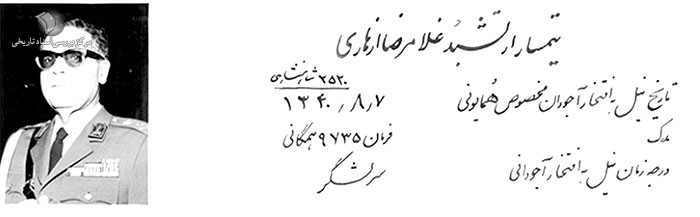 مرکز بررسی اسناد تاریخی
تیمسار ارتشبد غلامرضا ازهاری
۲۵۲۰ شاهنشاهی
تاریخ نیل به افتخار آجودان مخصوص همایونی ۱۳۴۰/۸/۷
مدرک فرمان ۹۷۳۵ همگانی
درجه زمان نیل به افتخار آجودانی سرلشگر